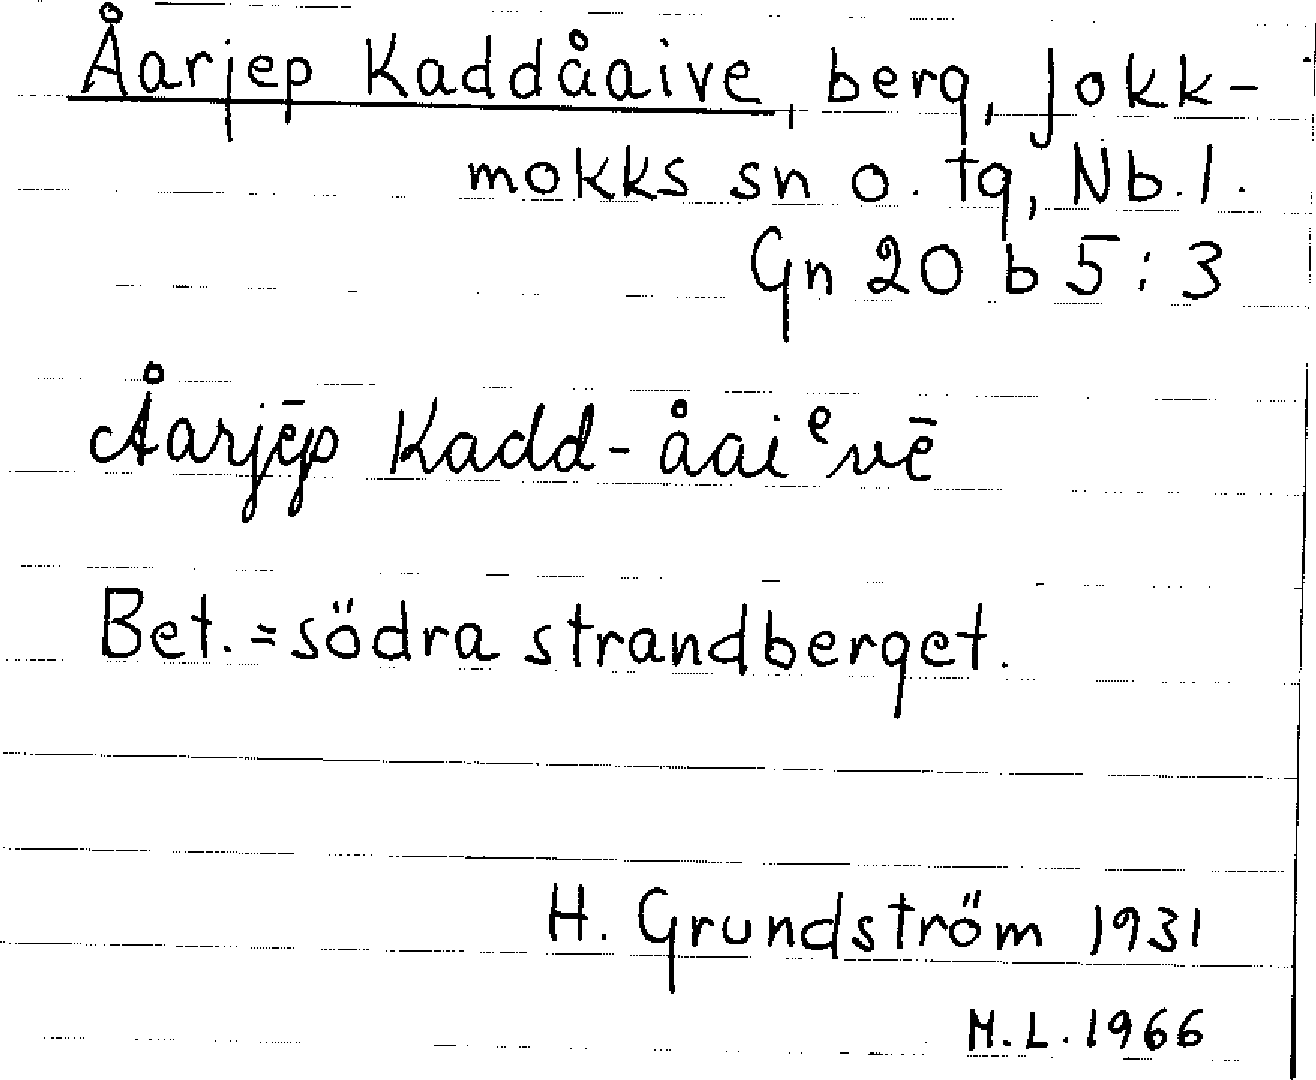 Åarjep Kaddåaive, berg, Jokk-
mokks sn o. tg, Nb. l.
Gn 20 b 5 : 3
Åarjēp Kadd-åaiᵉvē
Bet. = södra strandberget.
H. Grundström 1931
M.L. 1966